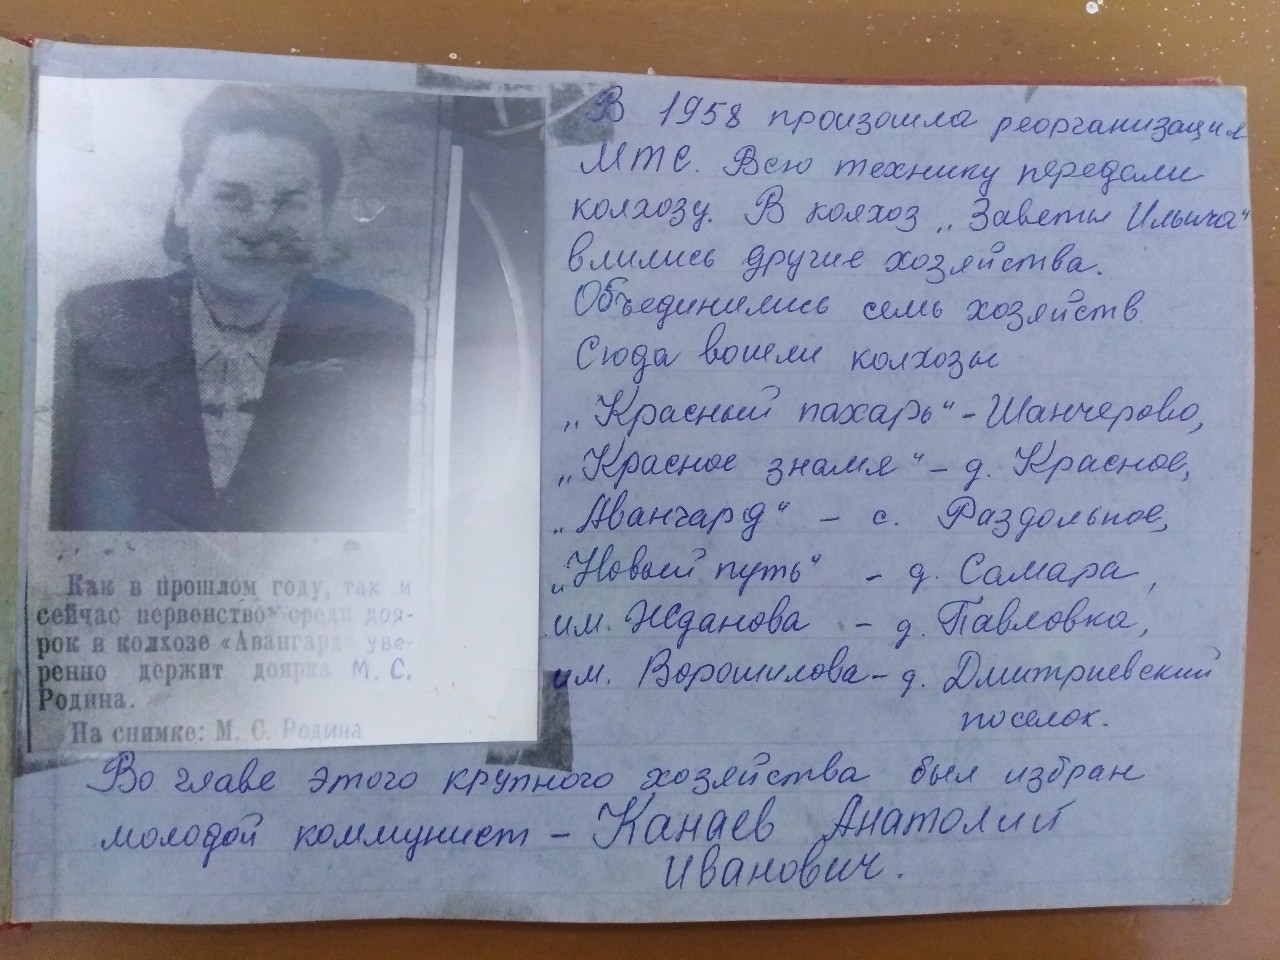 В 1958 произошла реорганизация
МТС. Всю технику передали
колхозу. В колхоз „Заветы Ильича“
влились другие хозяйства.
Объединились семь хозяйств.
Сюда вошли колхозы
„Красный пахарь“ – Шанчерово,
„Красное знамя“ – д. Красное,
„Авангард“ – с. Раздольное,
„Новый путь“ – д. Самара,
им. Жданова – д. Павловка,
им. Ворошилова – д. Дмитриевский
поселок.
Как в прошлом году, так и
сейчас первенство среди доя-
рок в колхозе «Авангард уве-
ренно держит доярка М. С.
Родина.
На снимке: М. С. Родина
Во главе этого крупного хозяйства был избран
молодой коммунист – Канаев Анатолий
Иванович.